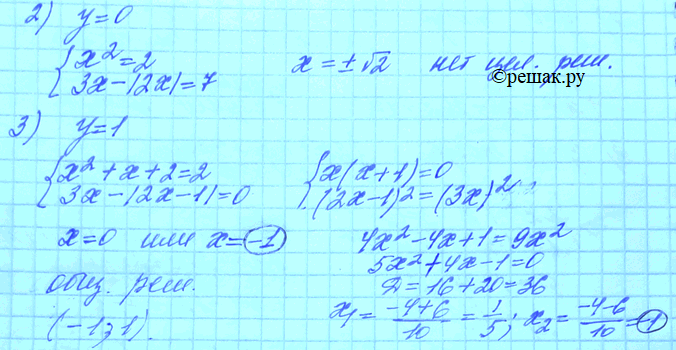 2) y=0
{x²=2
3x-|2x|=7
x=±√2 нет цел. реш.
©решак.ру
3) y=1
{x²+x+2=2
3x-|2x-1|=0
{x(x+1)=0
(2x-1)²=(3x)²
x=0 или x=-1
4x²-4x+1=9x²
5x²+4x-1=0
D=16+20=36
общ. реш.
x₁=(-4+6)/10=1/5; x₂=(-4-6)/10=-1
(-1;1).